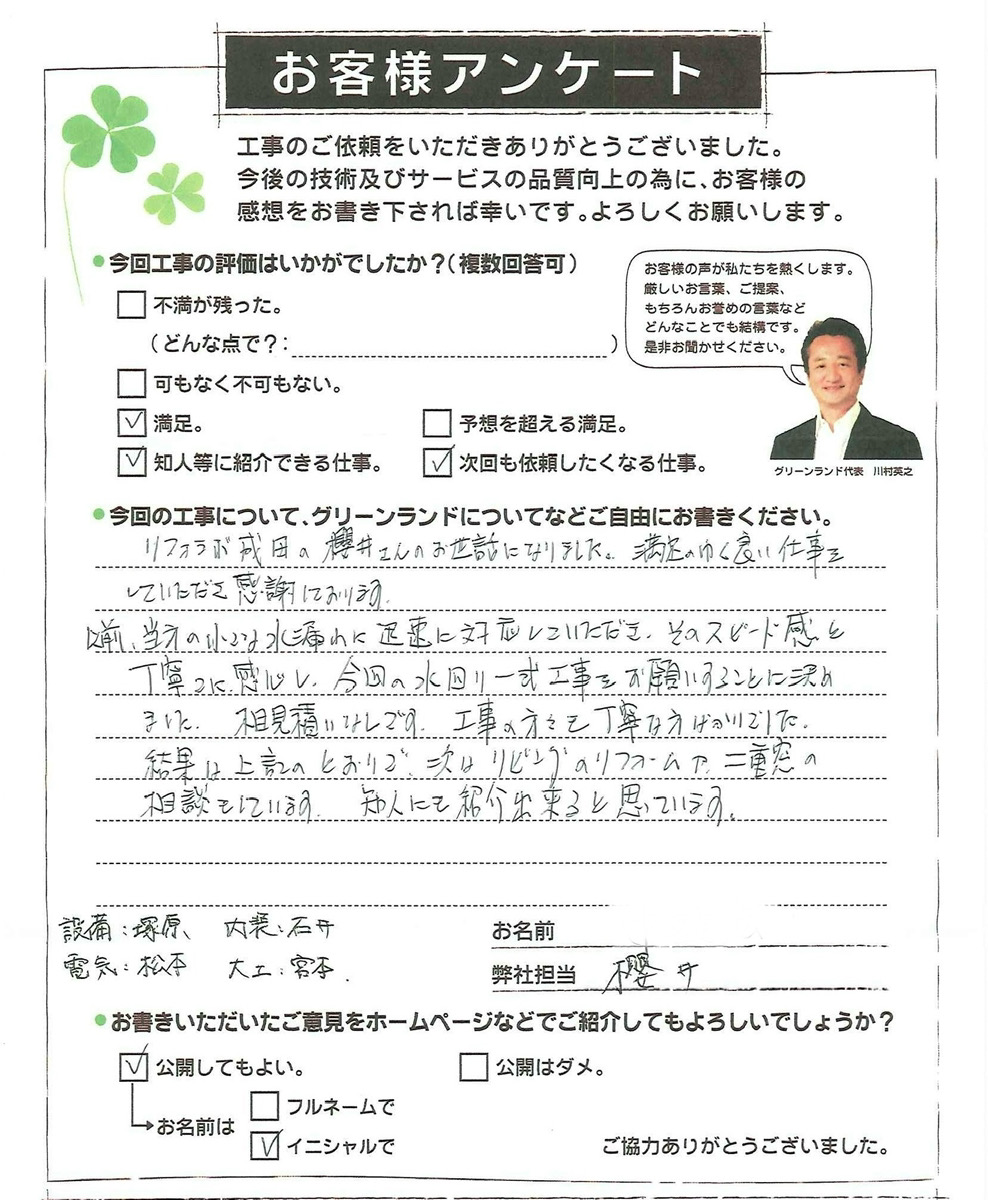 お客様アンケート
工事のご依頼をいただきありがとうございました。
今後の技術及びサービスの品質向上の為に、お客様の
感想をお書き下されば幸いです。よろしくお願いします。
●今回工事の評価はいかがでしたか?(複数回答可)
お客様の声が私たちを熱くします。
厳しいお言葉、ご提案、
もちろんお誉めの言葉など
どんなことでも結構です。
是非お聞かせください。
不満が残った。
(どんな点で?: )
可もなく不可もない。
満足。
予想を超える満足。
知人等に紹介できる仕事。
次回も依頼したくなる仕事。
グリーンランド代表 川村英之
●今回の工事について、グリーンランドについてなどご自由にお書きください。
リフォラボ成田の櫻井さんのお世話になりました。満足のゆく良い仕事を
していただき感謝しております。
以前、当方の小さな水漏れに迅速に対応していただき、そのスピード感と
丁寧さに感心し、今回の水回り一式工事をお願いすることに決め
ました。相見積りなしです。工事の方々も丁寧な方ばかりでした。
結果は上記のとおりで、次はリビングのリフォームや、二重窓の
相談もしています。知人にも紹介出来ると思っています。
設備:塚原、 内装:石井
電気:松本 大工:宮本.
お名前
弊社担当 櫻井
●お書きいただいたご意見をホームページなどでご紹介してもよろしいでしょうか?
公開してもよい。
公開はダメ。
お名前は
フルネームで
イニシャルで
ご協力ありがとうございました。